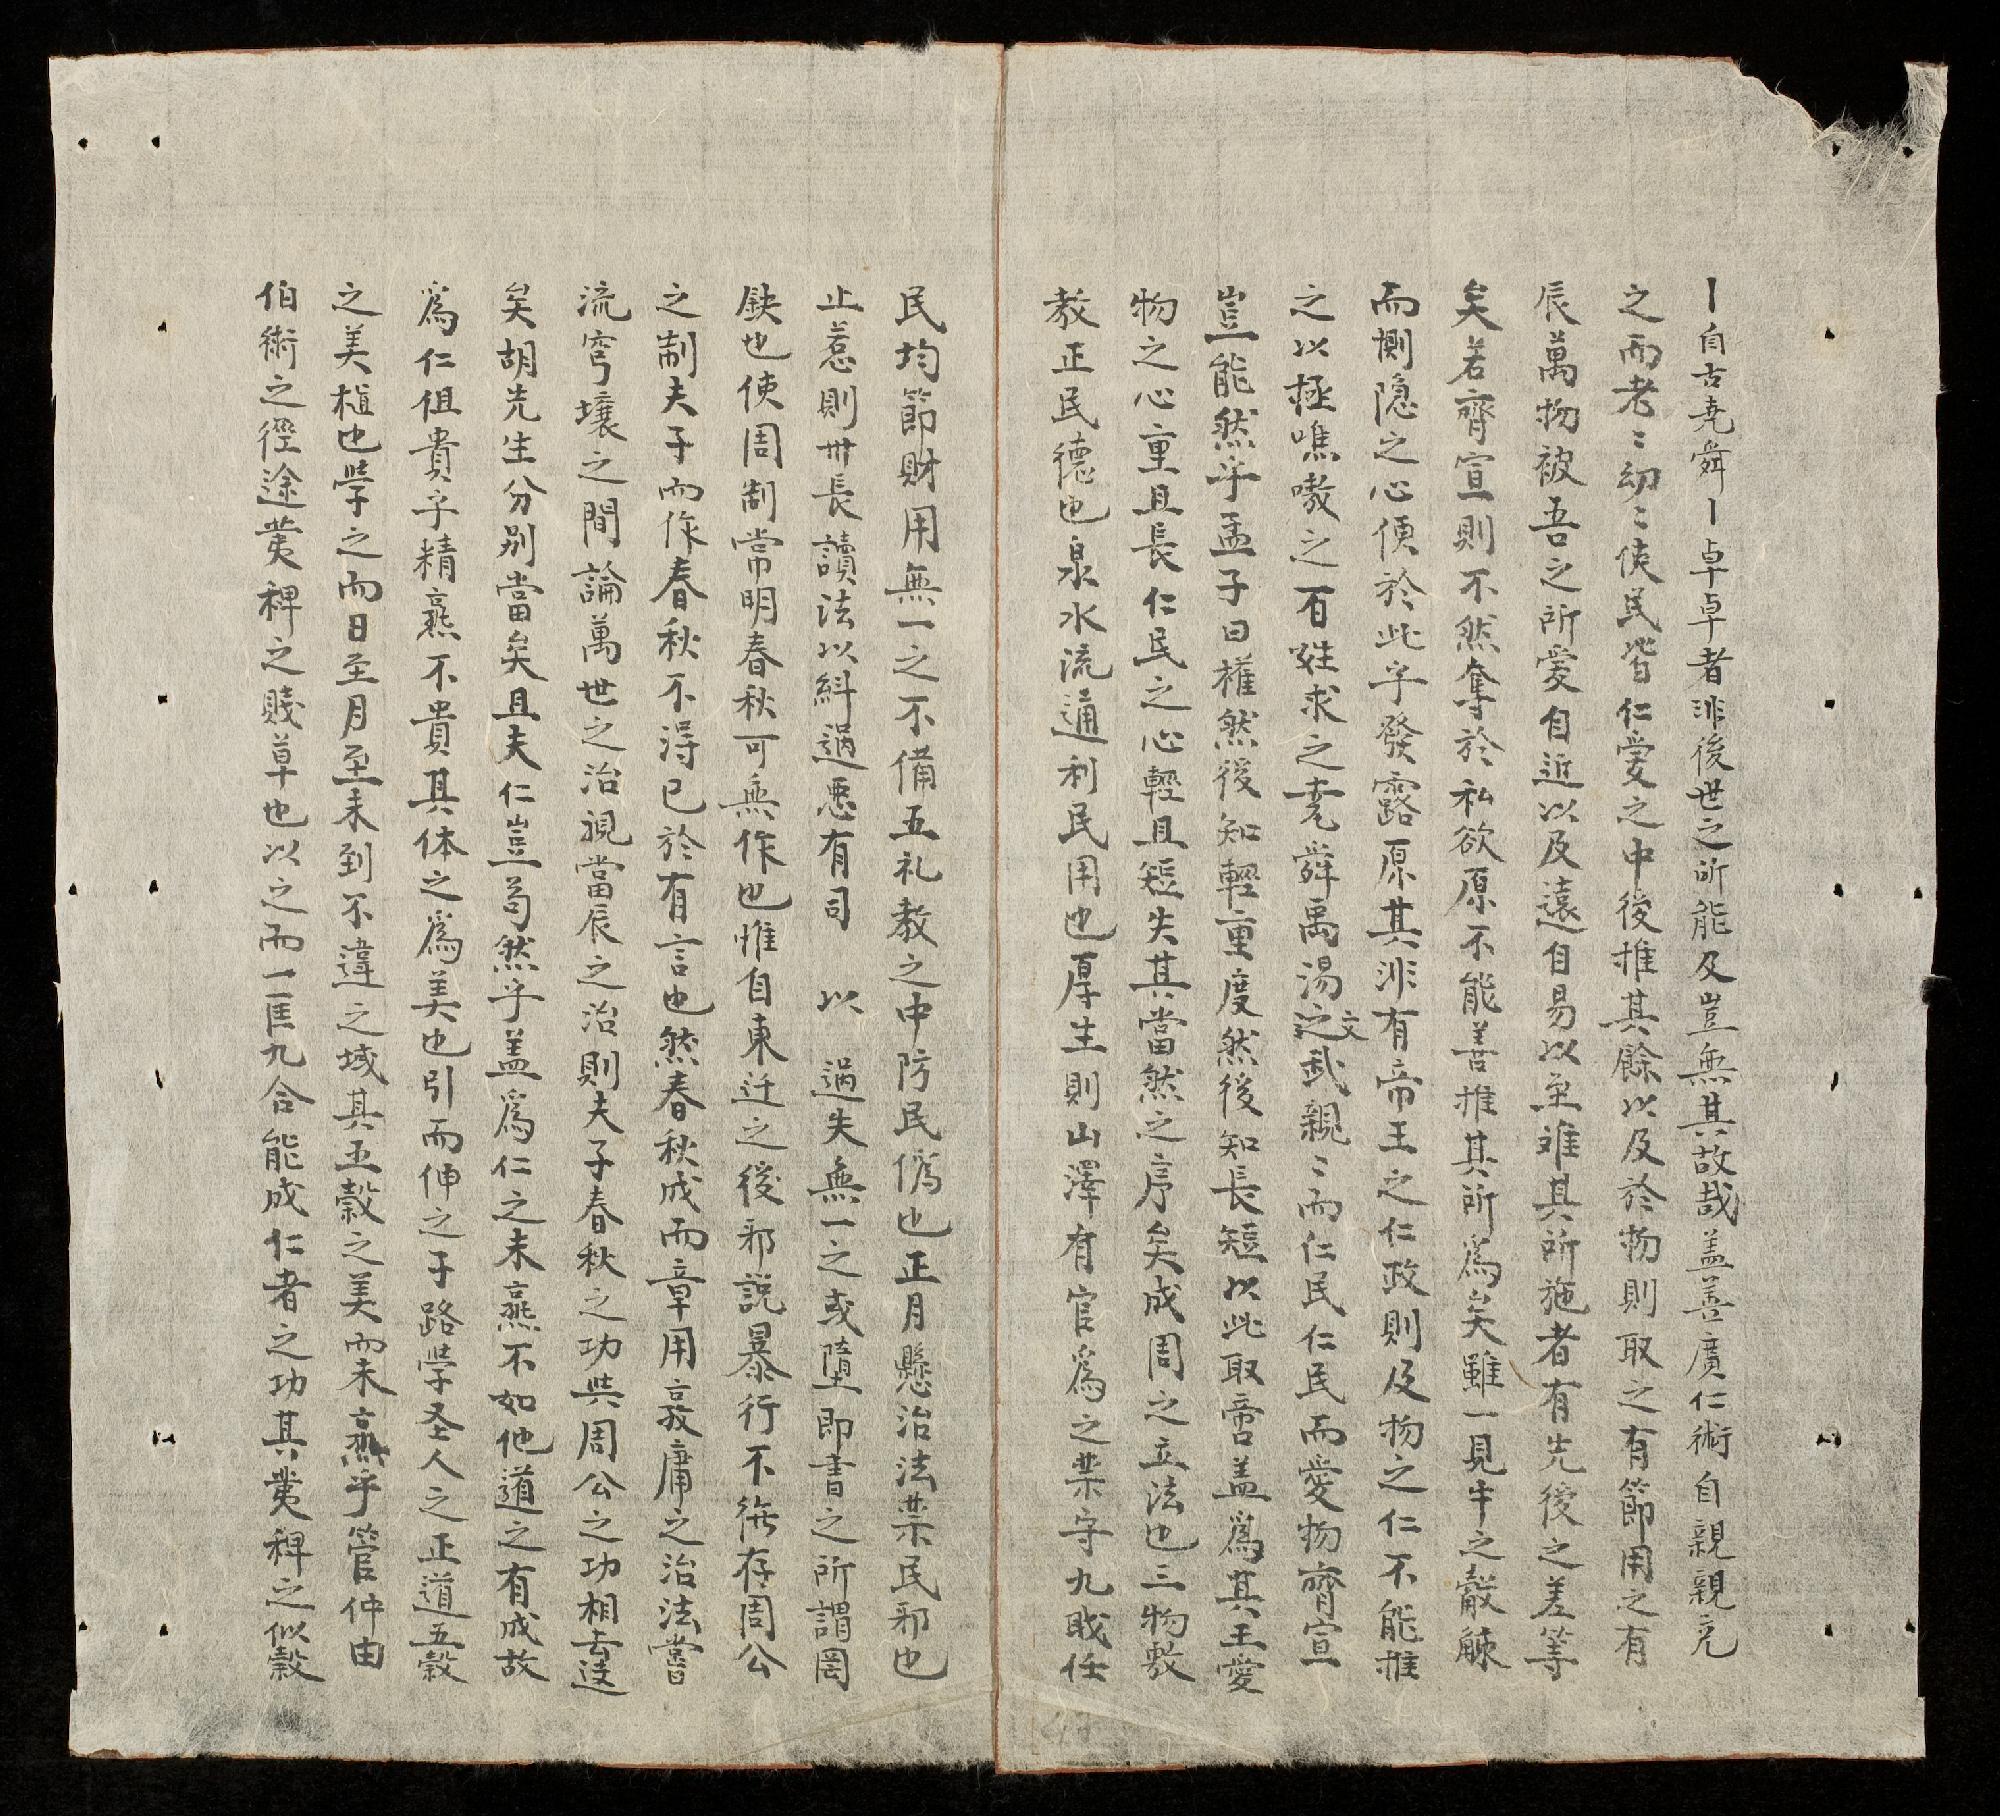 丨自古尭舜丨卓卓者非後世之所能及豈無其故哉盖善廣仁術自親親充
之而老〻幼〻使民皆仁愛之中後推其餘以及於物則取之有節用之有
辰萬物被吾之所愛自近以及遠自易以至难其所施者有先後之差等
矣若齊宣則不然奪於私欲原不能善推其所爲矣雖一見牛之觳觫
而惻隐之心便於此乎發露原其非有帝王之仁政則及物之仁不能推
之以極噍噭之百姓求之尭舜禹湯文武親〻而仁民仁民而愛物齊宣
豈能然乎孟子曰權然後知輕重度然後知長短以此取啻盖爲其王愛
物之心重且長仁民之心輕且短失其當然之序矣成周之立法也三物敎
教正民德也泉水流通利民用也厚生則山澤有官爲之業守九戝任
民均節財用無一之不備五礼教之中防民僞也正月懸治法禁民邪也
止慝則卅長讀法以糾過惡有司 以 過失無一之或墮即書之所謂罔
缺也使周制常明春秋可無作也惟自東迁之後邪説暴行不徃存周公
之制夫子而作春秋不淂已於有言也然春秋成而章用敦庸之治法嘗
流穹壤之間論萬世之治視當辰之治則夫子春秋之功与周公之功相去逕
矣胡先生分别當矣且夫仁豈苟然乎盖爲仁之未熹不如他道之有成故
爲仁伹貴乎精熹不貴其体之爲美也引而伸之子路学圣人之正道五穀
之美植也学之而日至月至未到不違之域其五穀之美而未熹乎管仲由
伯術之徑途荑稗之賤草也以之而一匡九合能成仁者之功其荑稗之似穀